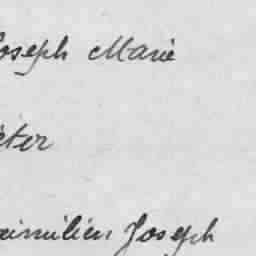 Joseph Marie
éter
aximilien Joseph